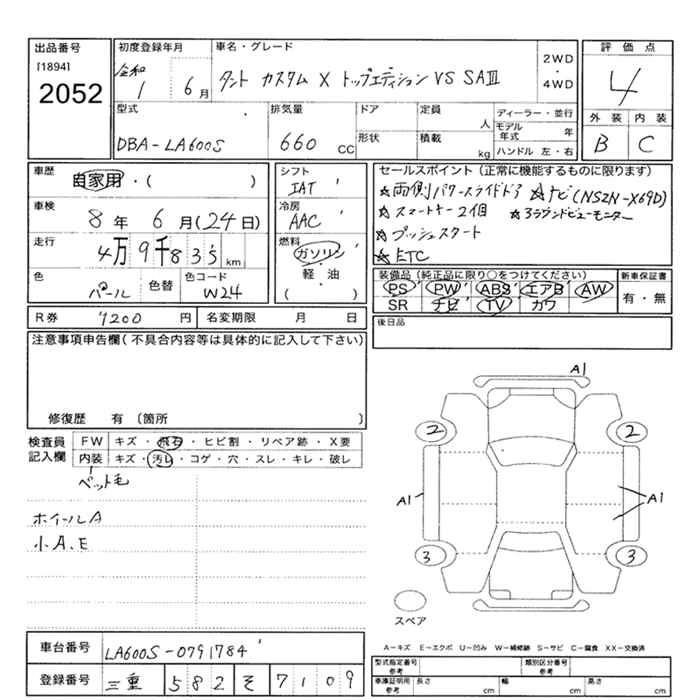 出品番号
[1894]
2052
初度登録年月
令和
1 6月
車名・グレード
タント カスタム X トップエディション VS SAⅢ
2WD
・
4WD
評価点
4
外装 内装
B C
型式
DBA-LA600S
排気量
660 CC
ドア
形状
定員
人
積載
kg
ディーラー・並行
モデル年式 年
ハンドル 左・右
車歴
自家用・( )
車検
8年 6月(24日)
走行
4万9千835km
色
パール
色替
色コード
W24
シフト
IAT
冷房
AAC
燃料
ガソリン
・
軽・油
( )
セールスポイント(正常に機能するものに限ります)
☆両側パワースライドドア ☆ナビ(NSZN-X69D)
☆スマートキー2個 ☆3ラウンドビューモニター
☆プッシュスタート
☆ETC
装備品(純正品に限り○をつけてください)
PS PW ABS エアB AW
SR ナビ TV カワ
新車保証書
有・無
R券 9200円
名変期限 月 日
後日品
注意事項申告欄(不具合内容等は具体的に記入して下さい)
修復歴 有 〔箇所 〕
検査員
記入欄
FW キズ・飛石・ヒビ割・リペア跡・X要
内装 キズ・汚レ・コゲ・穴・スレ・キレ・破レ
ペット毛
ホイールA
小A.E
A1
2 2
A1 A1
3 3
スペア
A－キズ E－エクボ U－凹み W－補修跡 S－サビ C－腐食 XX－交換済
車台番号 LA600S-0791784
登録番号 三重 582 そ 7109
型式指定番号
参考
類別区分番号
参考
車庫証明用
参考
長さ cm 幅 cm 高さ cm